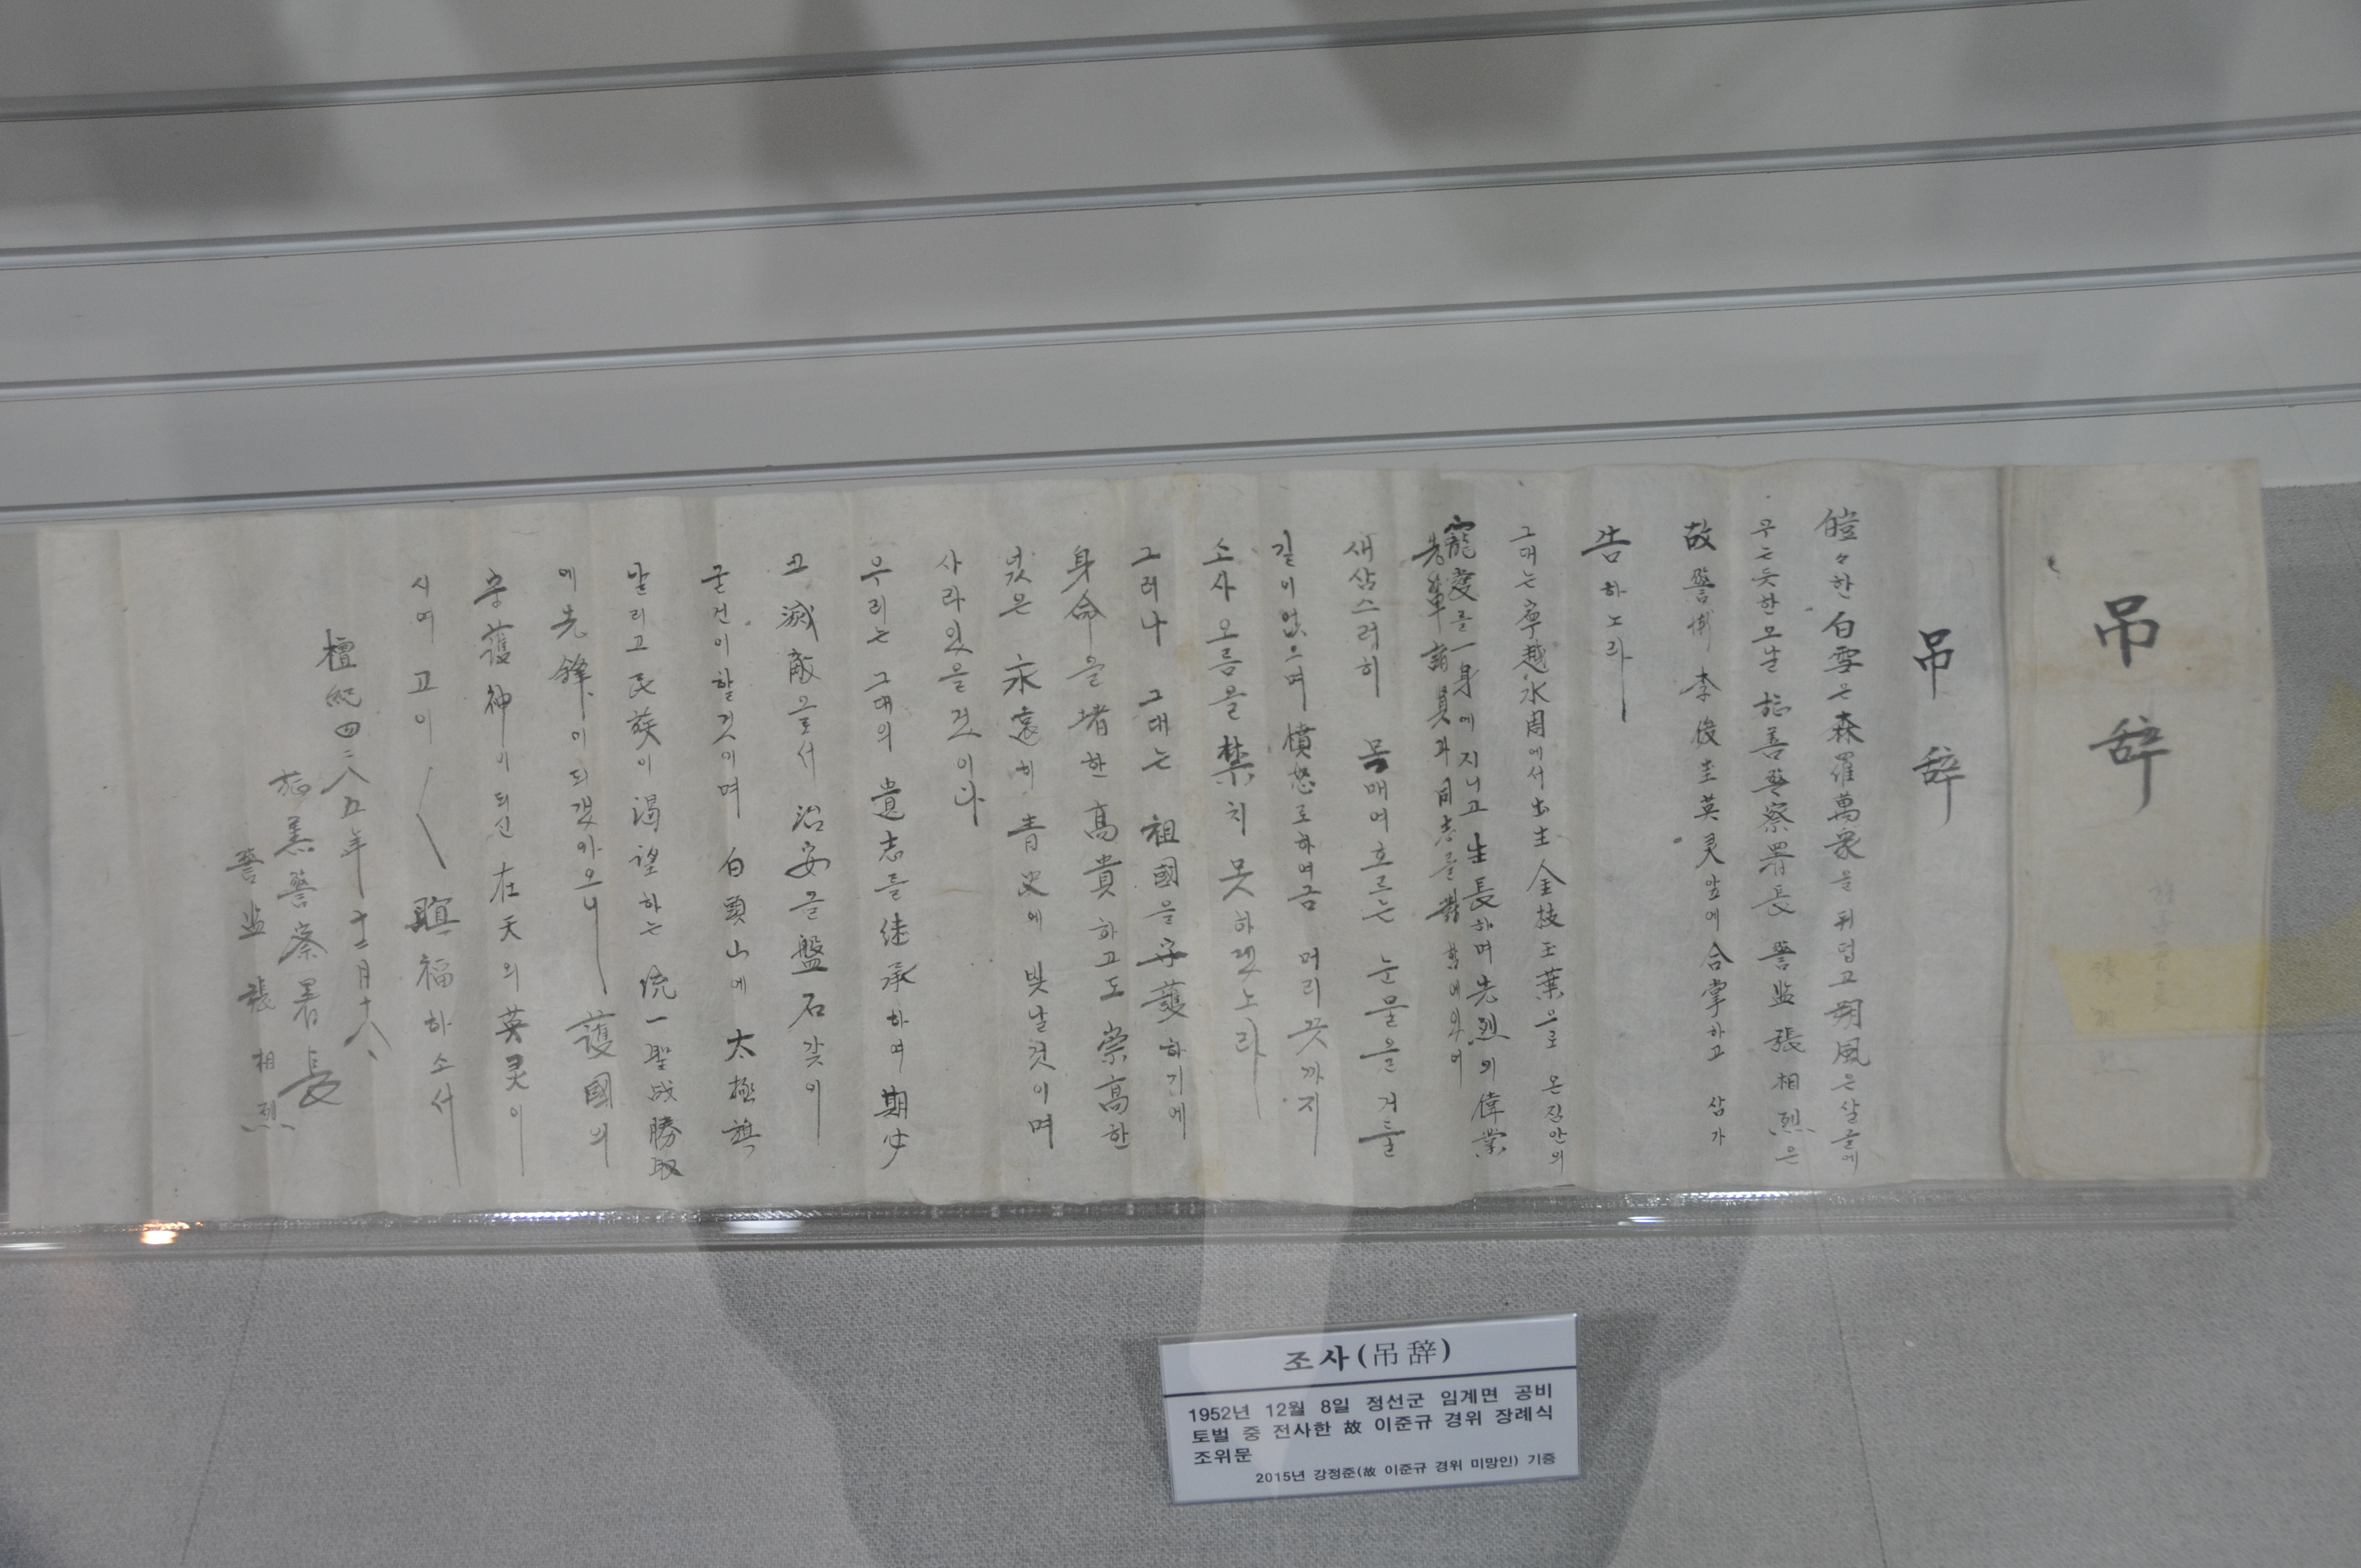 吊辞
吊辞
皚々한 白雪은 森羅萬象을 뒤덥고 朔風은 살을에
우는듯한 모날 旌善警察署長 警監 張相烈은
故 警衛 李俊圭 英灵 앞에 合掌하고 삼가
告하노라
그대는 寧越水周에서 出生 金枝玉葉으로 온집안의
寵愛를 一身에 지니고 生長하며 先烈의 偉業
새삼스러히 목매여 흐르는 눈물을 거둘
길이 없으며 憤怒로 하여금 머리끗까지
소사오름을 禁치 못하겠노라
그러나 그대는 祖國을 守護하기에
身命을 堵한 高貴하고도 崇高한
넋은 永遠히 靑史에 빛날것이며
사라있을 것이다
우리는 그대의 遺志를 継承하여 期必
코 滅敵을서 治安을 盤石갖이
굳건이할것이며 白頭山에 太極旗
날리고 民族이 渴望하는 統一聖戰勝取
에 先鋒이 되겠아오니 護國의
守護神이 되신 在天의 英灵이
시여 고이 〱 瞑福하소서
檀紀四二八五年 十二月十八
旌善警察署長
警监 張相烈
조사(吊辞)
1952년 12월 8일 정선군 임계면 공비
토벌 중 전사한 故 이준규 경위 장례식
조위문
2015년 강정준(故 이준규 경위 미망인) 기증